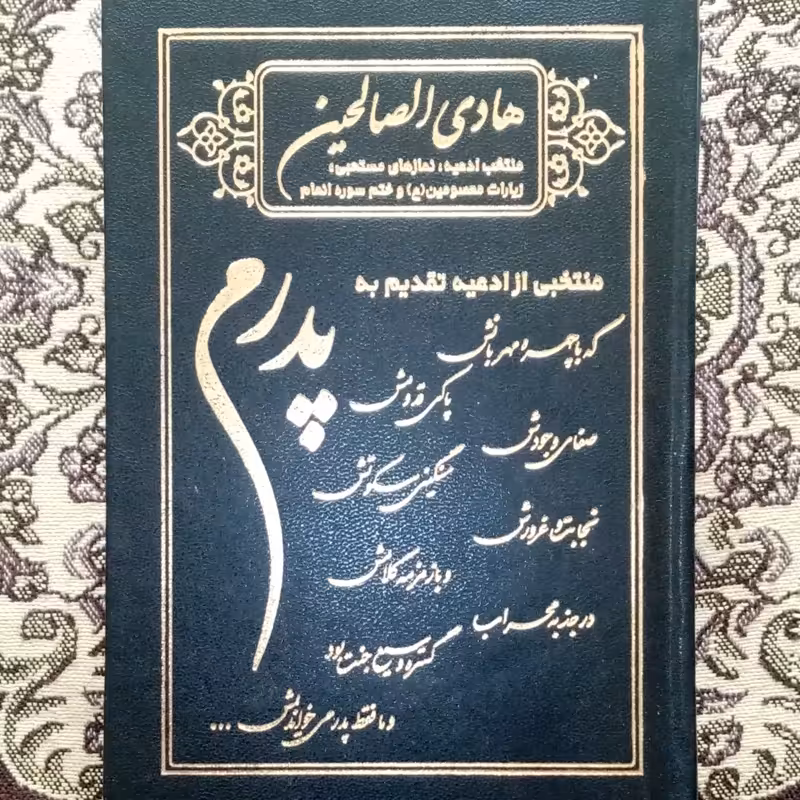 هادی الصالحین
منتخب ادعیه، نمازهای مستحبی،
زیارات معصومین(ع) و ختم سوره انعام
منتخبی از ادعیه تقدیم به
پدرم
که با چهره مهربانش
پاکی قدومش
صفای وجودش
سنگینی سکوتش
نجابت و غرورش
و باز مزمه کلامش
در جذبه محراب
گستره وسیع جنت بود
و ما فقط پدر می‌خواندیمش ...